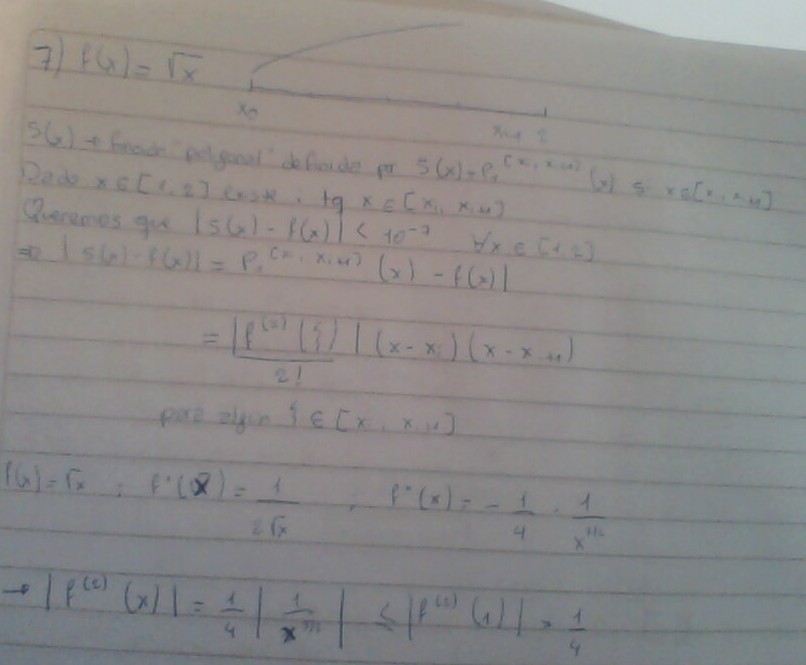 7) f(x) = √x
x₀ xₙ₊₁ 2
S(x) → función "poligonal" definida por S(x) = P₁^[xᵢ, xᵢ₊₁] (x) si x ∈ [xᵢ, xᵢ₊₁]
Dado x ∈ [1, 2] existe i tq x ∈ [xᵢ, xᵢ₊₁]
Queremos que |S(x) - f(x)| < 10⁻⁷ ∀x ∈ [1, 2]
⇒ |S(x) - f(x)| = P₁^[xᵢ, xᵢ₊₁] (x) - f(x)|
= |f⁽²⁾(ξ)/2! | (x - xᵢ)(x - xᵢ₊₁)
para algún ξ ∈ [xᵢ, xᵢ₊₁]
f(x) = √x ; f'(x) = 1/(2√x) , f''(x) = - 1/4 · 1/x^(3/2)
→ |f⁽²⁾(x)| = 1/4 |1/x^(3/2)| ≤ |f⁽²⁾(1)| = 1/4